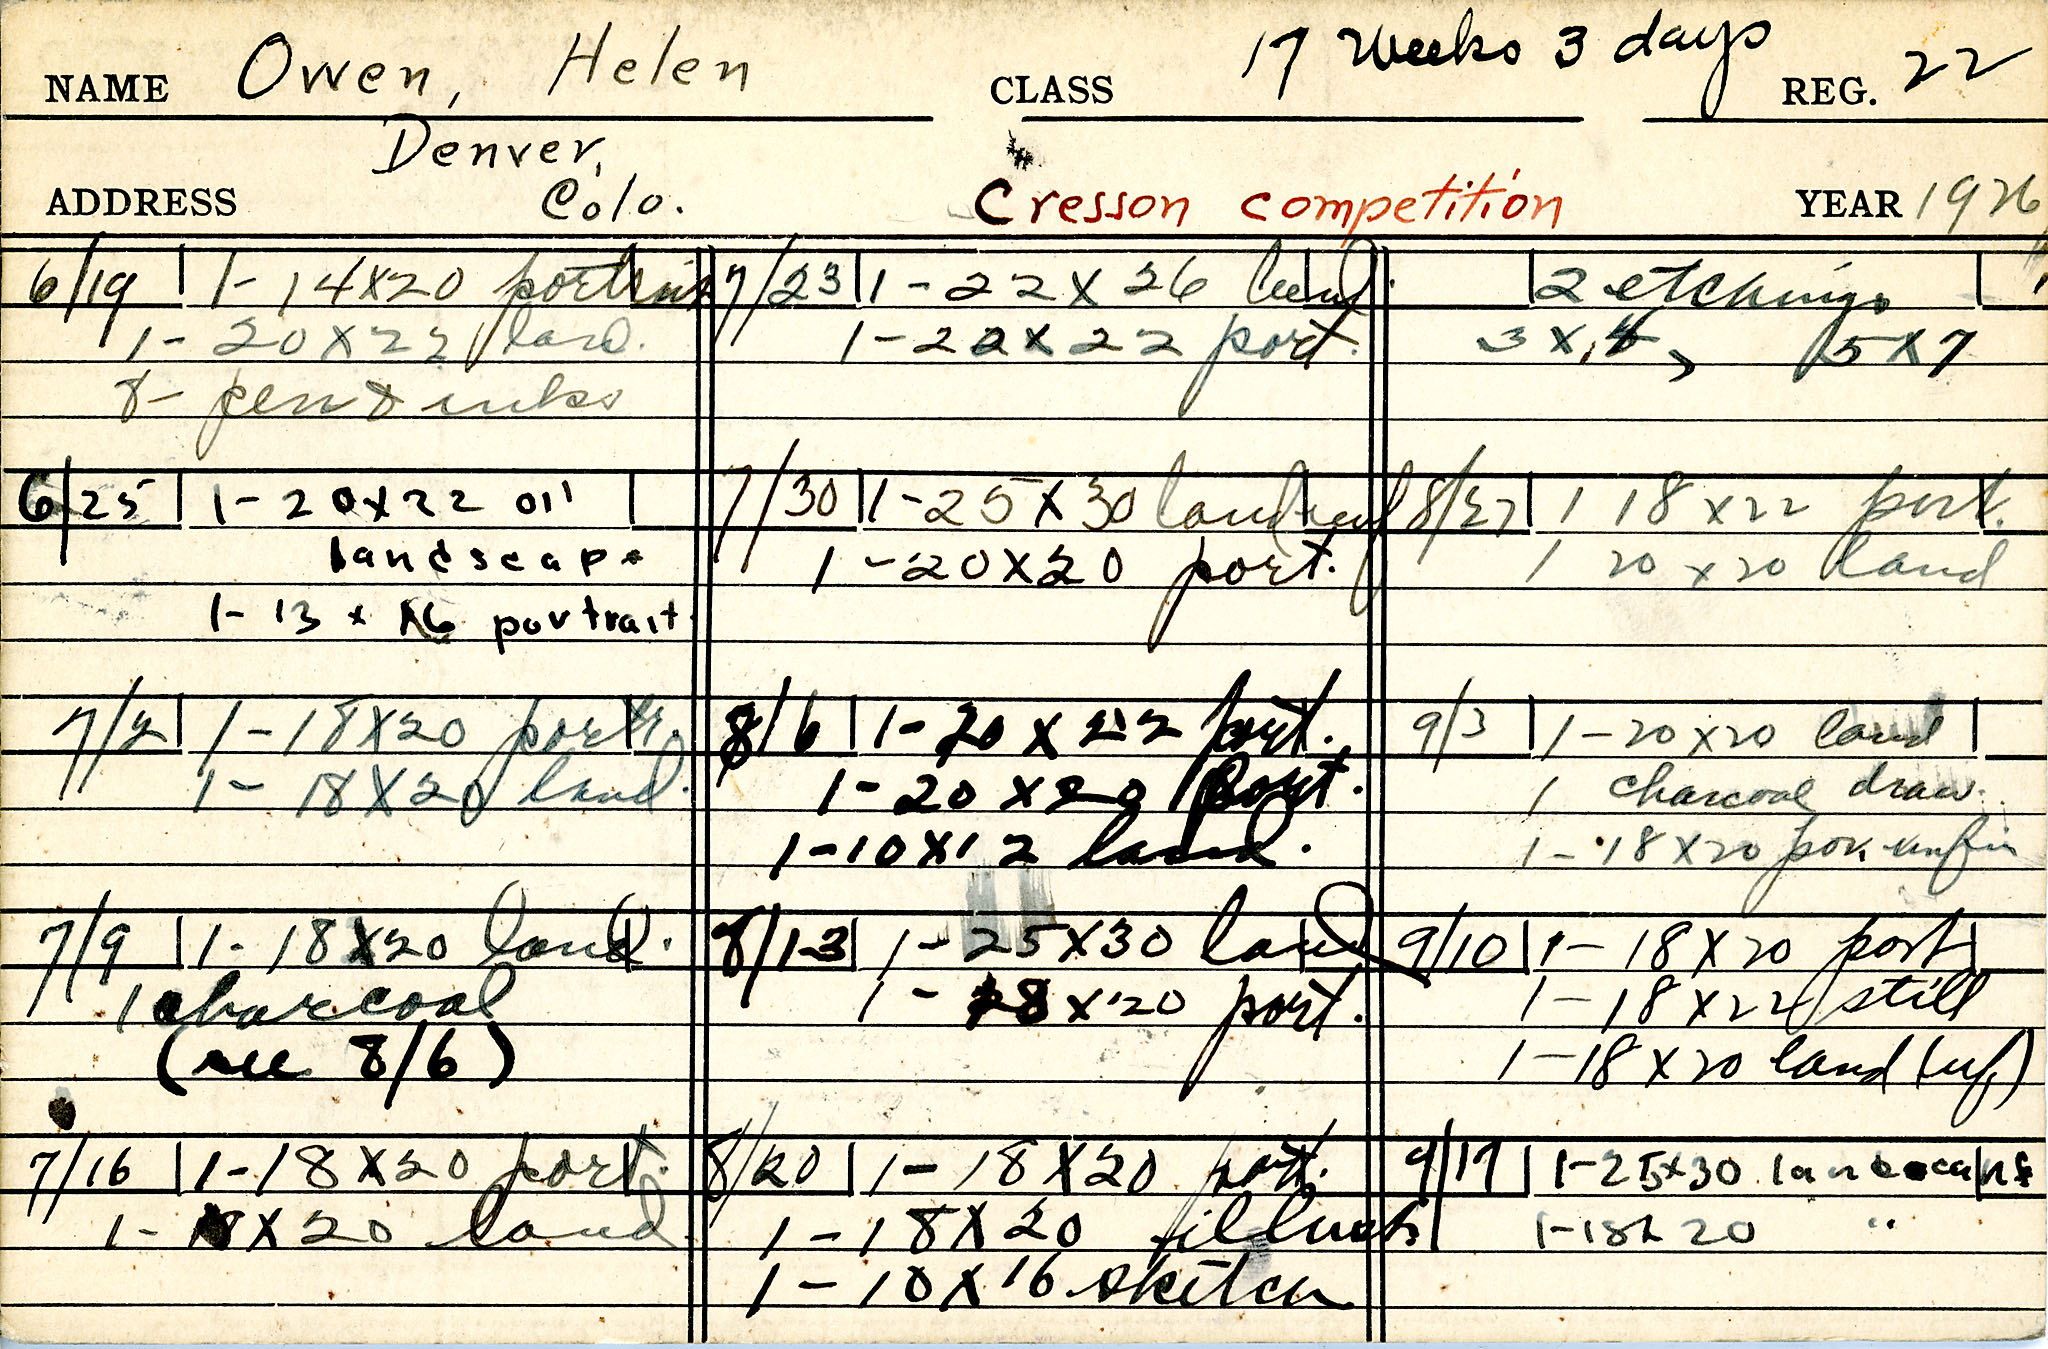 NAME Owen, Helen CLASS 17 Weeks 3 days REG. 22
ADDRESS Denver, Colo. Cresson competition YEAR 1926
6/19 1-14x20 portrait
1-20x22 land.
8- pen & inks
6/25 1-20x22 oil
landscape
1-13 x 16 portrait
7/2 1-18x20 portr.
1-18x20 land.
7/9 1-18x20 land.
1 charcoal
(see 8/6)
7/16 1-18x20 port.
1-18x20 land
7/23 1-22x26 land.
1-22x22 port.
7/30 1-25x30 land
1-20x20 port.
8/6 1-20x22 port.
1-20x20 port.
1-10x12 land.
8/13 1-25x30 land
1-18x20 port.
8/20 1-18x20 port.
1-18x20 illus.
1-10x16 sketch
2 etchings
3x4, 5x7
8/27 1 18x22 port.
1 20x20 land
9/3 1-20x20 land
1 charcoal draw.
1-18x20 por. unfin
9/10 1-18x20 port
1-18x22 still
1-18x20 land (uf)
9/17 1-25x30 landscape
1-18x20 "